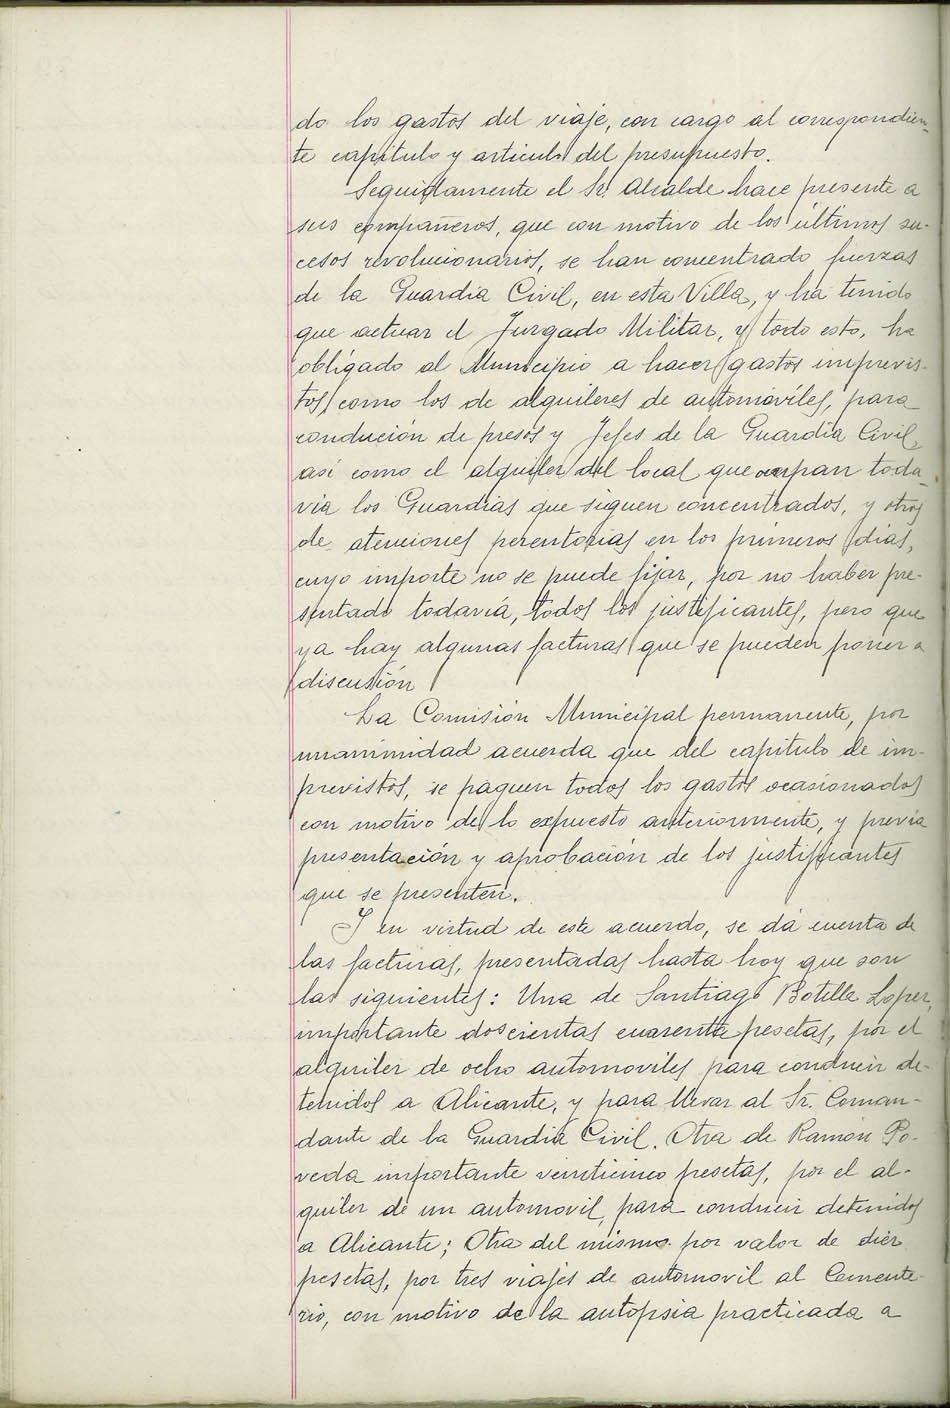 do los gastos del viaje, con cargo al correspondien-
te capitulo y articulo del presupuesto.
Seguidamente el Sr. Alcalde hace presente a
sus compañeros, que con motivo de los últimos su-
cesos revolucionarios, se han concentrado fuerzas
de la Guardia Civil, en esta Villa, y ha tenido
que actuar el Juzgado Militar, y todo esto, ha
obligado al Municipio a hacer gastos imprevis-
tos, como los de alquileres de automóviles, para
condución de presos y Jefes de la Guardia Civil,
así como el alquiler del local que ocupan toda-
vía los Guardias que siguen concentrados, y otros
de atenciones perentorias en los primeros dias,
cuyo importe no se puede fijar, por no haber pre-
sentado todavía, todos los justificantes, pero que
ya hay algunas facturas que se pueden poner a
discusión
La Comisión Municipal permanente, por
unanimidad acuerda que del capitulo de im-
previstos, se paguen todos los gastos ocasionados
con motivo de lo expuesto anteriormente, y previa
presentación y aprobación de los justificantes
que se presenten.
Y en virtud de este acuerdo, se dá cuenta de
las facturas, presentadas hasta hoy que son
las siguientes: Una de Santiago Botella Lopez,
importante doscientas cuarenta pesetas, por el
alquiler de ocho automoviles para conducir de-
tenidos a Alicante, y para llevar al Sr. Coman-
dante de la Guardia Civil. Otra de Ramón Po-
veda importante veinticinco pesetas, por el al-
quiler de un automovil, para conducir detenidos
a Alicante; Otra del mismo por valor de diez
pesetas, por tres viajes de automovil al Cemente-
rio, con motivo de la autopsia practicada a